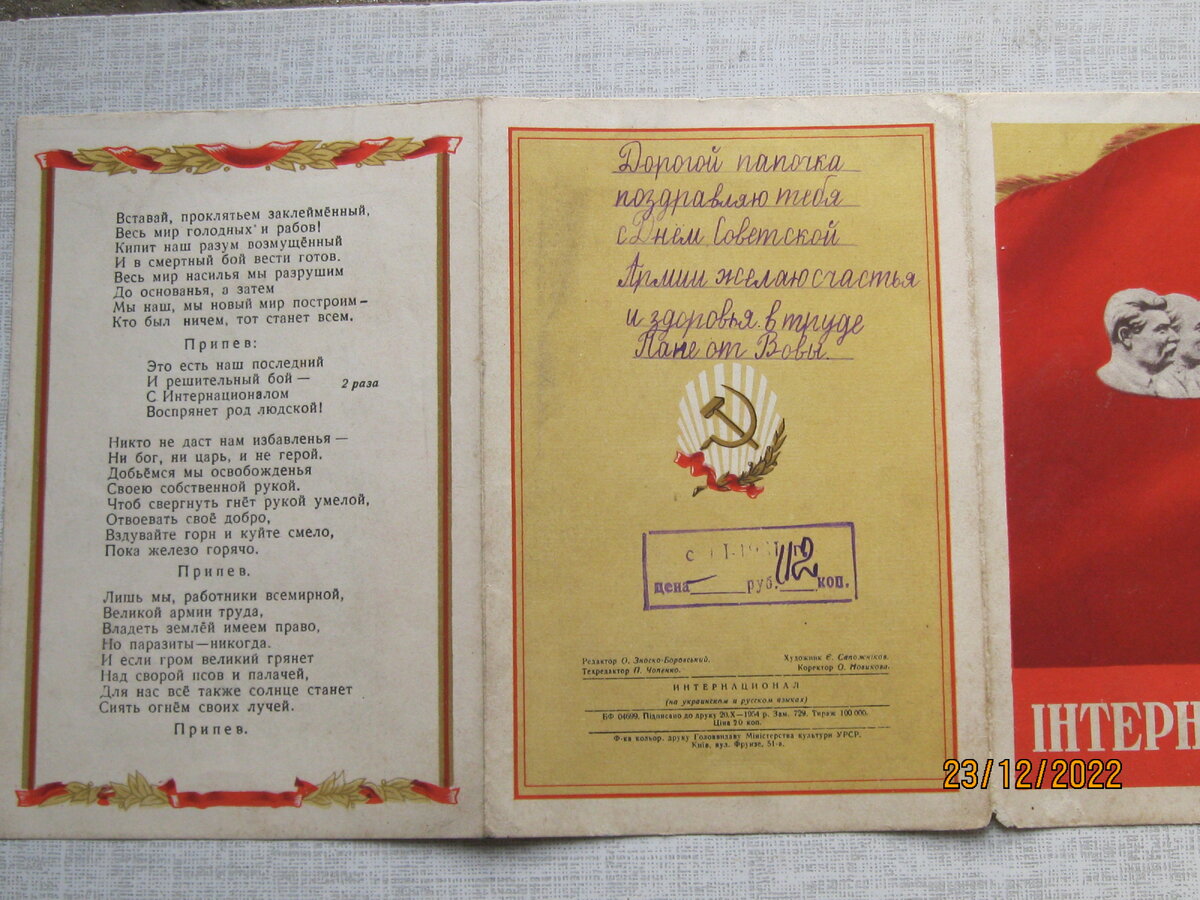 Вставай, проклятьем заклеймённый,
Весь мир голодных и рабов!
Кипит наш разум возмущённый
И в смертный бой вести готов.
Весь мир насилья мы разрушим
До основанья, а затем
Мы наш, мы новый мир построим—
Кто был ничем, тот станет всем.
Припев:
Это есть наш последний
И решительный бой —
С Интернационалом
Воспрянет род людской!
2 раза
Никто не даст нам избавленья —
Ни бог, ни царь, и не герой.
Добьёмся мы освобожденья
Своею собственной рукой.
Чтоб свергнуть гнёт рукой умелой,
Отвоевать своё добро,
Вздувайте горн и куйте смело,
Пока железо горячо.
Припев.
Лишь мы, работники всемирной,
Великой армии труда,
Владеть землёй имеем право,
Но паразиты—никогда.
И если гром великий грянет
Над сворой псов и палачей,
Для нас всё также солнце станет
Сиять огнём своих лучей.
Припев.
Дорогой папочка
поздравляю тебя
с Днём Советской
Армии желаю счастья
и здоровья в труде
Папе от Вовы.
цена руб. 12 коп.
Редактор О. Зноско-Боровський.
Техредактор П. Чопенко.
Художник Є. Сапожніков.
Коректор О. Новикова.
ИНТЕРНАЦИОНАЛ
(на украинском и русском языках)
БФ 04699. Підписано до друку 20.X—1954 р. Зам. 729. Тираж 100 000.
Ціна 20 коп.
Ф-ка кольор. друку Головвидаву Міністерства культури УРСР.
Київ, вул. Фрунзе, 51-а.
ІНТЕРН
23/12/2022